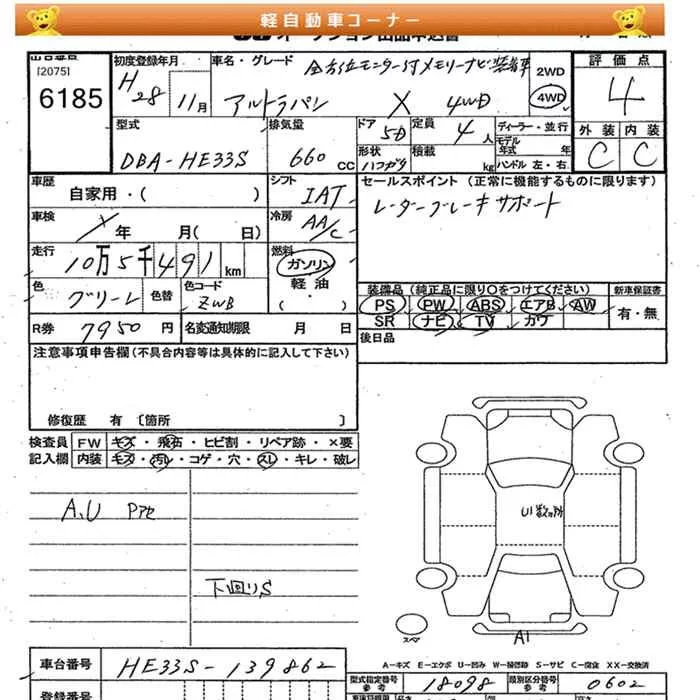 軽自動車コーナー
オークション出品申込書
出品番号
[2075]
6185
初度登録年月
H28
11月
車名・グレード
全方位モニター付メモリーナビ装着車
アルトラパン X 4WD
2WD
4WD
評価点
4
外装 内装
C C
型式
DBA-HE33S
排気量
660 CC
ドア
5D
形状
ハコガタ
定員
4人
積載
kg
ディーラー・並行
モデル年式 年
ハンドル 左・右
車歴
自家用・( )
シフト
IAT
セールスポイント (正常に機能するものに限ります)
レーダーブレーキサポート
車検
年 月( 日)
冷房
AA/C
走行
10万5千491km
燃料
ガソリン
軽油
( )
色
グリーン
色替
色コード
ZWB
装備品 (純正品に限り○をつけてください)
PS PW ABS エアB AW
SR ナビ TV カワ
新車保証書
有・無
R券
7950円
名変通知期限 月 日
後日品
注意事項申告欄(不具合内容等は具体的に記入して下さい)
修復歴 有 〔箇所 〕
検査員 FW キズ・飛石・ヒビ割・リペア跡・×要
記入欄 内装 キズ・汚レ・コゲ・穴・スレ・キレ・破レ
A、U Pアセ
下回りS
U1数ヶ所
A1
スペア
A-キズ E-エクボ U-凹み W-補修跡 S-サビ C-腐食 XX-交換済
車台番号
HE33S-139862
型式指定番号
参考
18098
類別区分番号
参考
0602
登録番号